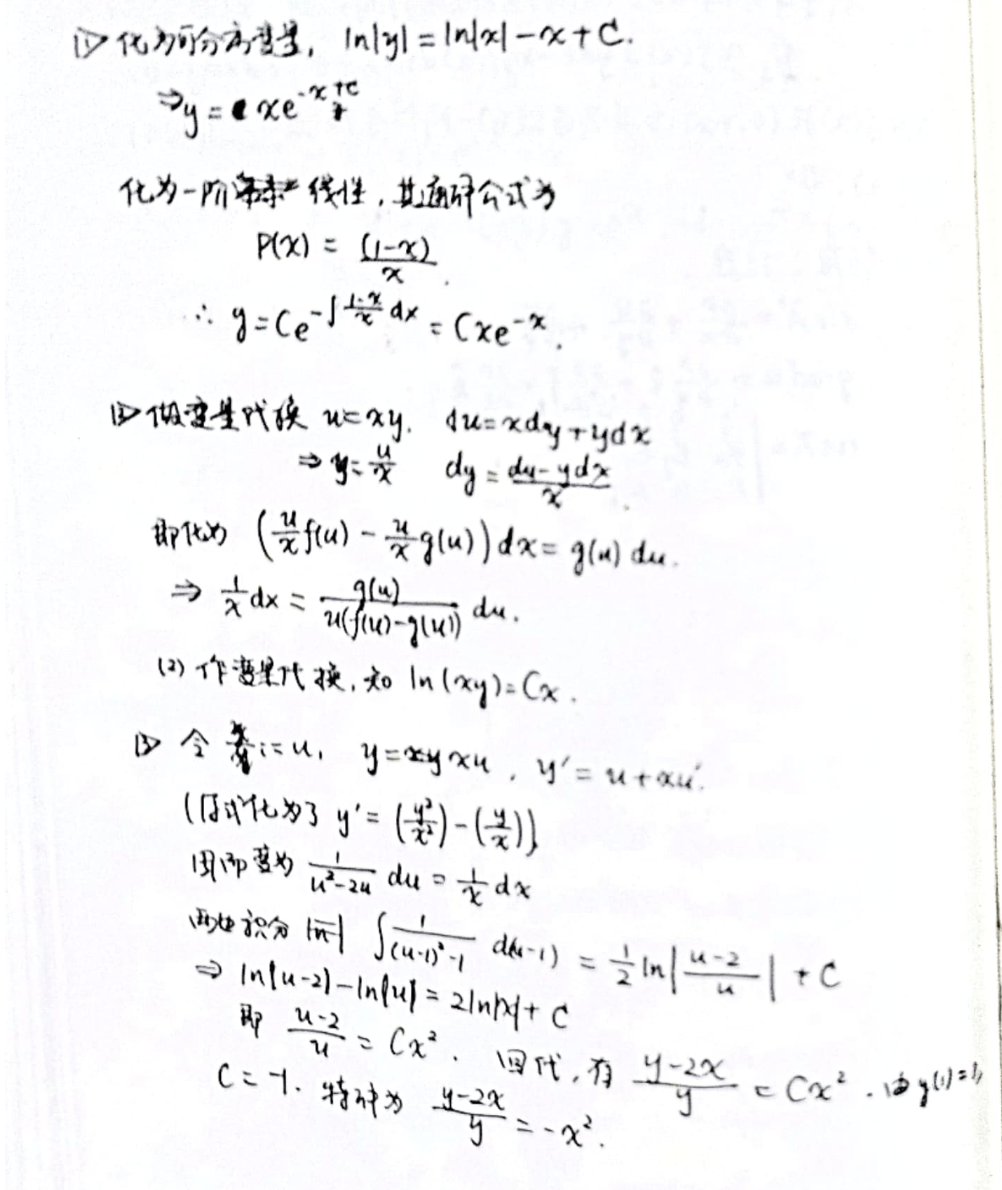 ① 化为可分离变量, ln|y|=ln|x|-x+C.
⇒y= xe^{-x+c}
化为一阶 线性, 其通解公式为
P(x) = \frac{(1-x)}{x}
∴ y=Ce^{-∫\frac{1-x}{x}dx} = Cxe^{-x}.
② 做变量代换 u=xy. du=xdy+ydx
⇒ y=\frac{u}{x} dy=\frac{du-ydx}{x}
即化为 (\frac{u}{x}f(u) - \frac{u}{x}g(u))dx = g(u) du.
⇒ \frac{1}{x}dx = \frac{g(u)}{u(f(u)-g(u))} du.
(2) 作变量代换, 知 ln(xy)=Cx.
③ 令 =u, y= xu, y'=u+xu'.
(原式化为了 y'=(\frac{y^2}{x^2})-(\frac{y}{x}))
即变为 \frac{1}{u^2-2u} du = \frac{1}{x} dx
两边积分 ∫\frac{1}{(u-1)^2-1} d(u-1) = \frac{1}{2}ln|\frac{u-2}{u}|+C
⇒ ln|u-2|-ln|u|=2ln|x|+C
即 \frac{u-2}{u} = Cx^2. 回代, 有 \frac{y-2x}{y} = Cx^2. 由y(1)=1,
C=-1. 特解为 \frac{y-2x}{y} = -x^2.